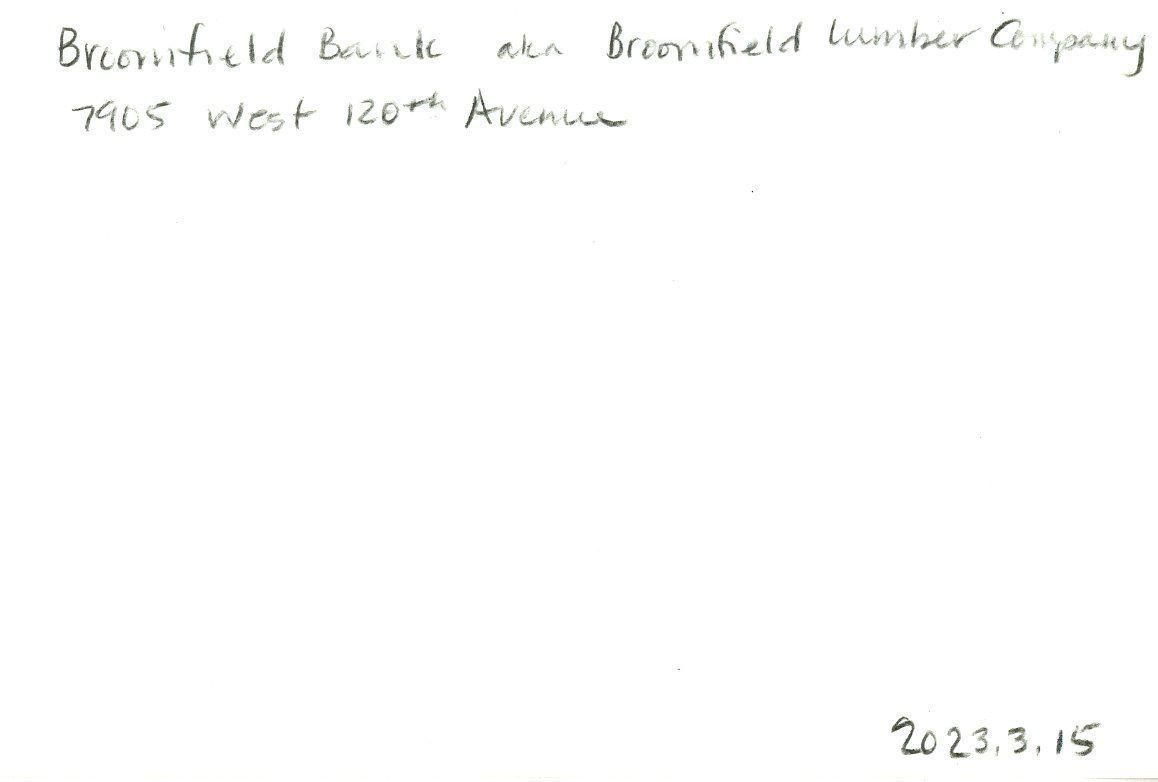 Broomfield Bank aka Broomfield Lumber Company
7905 West 120th Avenue
2023.3.15